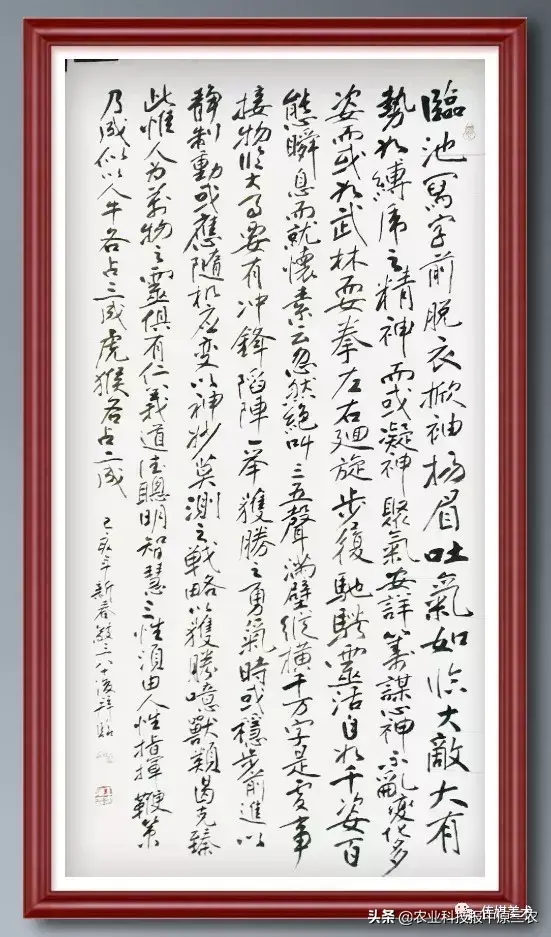 臨池寫字前脫衣掀袖揚眉吐氣如臨大敵大有
勢如縛虎之精神而或凝神聚氣安詳籌謀心神不亂變化多
姿而或如武林耍拳左右廻旋步履馳騁靈活自如千姿百
態瞬息而就懷素云忽然絕叫三五聲滿壁縱橫千万字是處事
接物临大事要有冲鋒陷陣一举獲勝之勇氣時或穩步前進以
靜制動或應隨机应变以神妙莫測之戦略以獲勝噫獸類曷克臻
此惟人为萬物之靈俱有仁義道德聰明智慧三性須由人性指揮鞭策
乃成似以人牛各占三成虎猴各占二成
己亥年新春
头条 @农业科技报中原三农
传媒美术